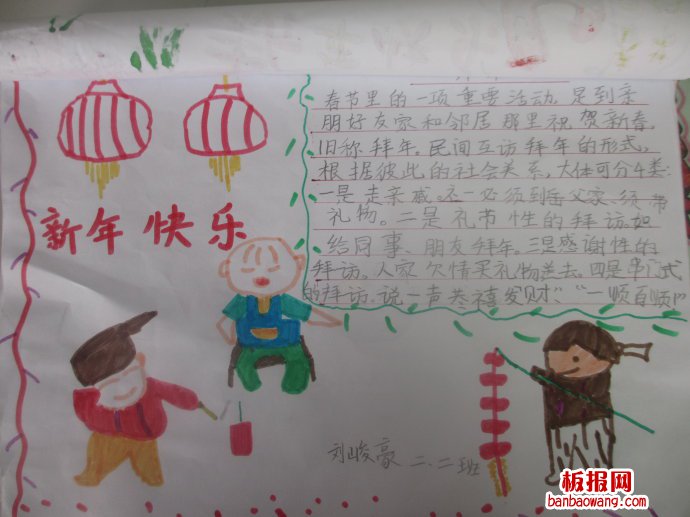 春节里的一项重要活动，是到亲
朋好友家和邻居那里祝贺新春，
旧称拜年。民间互访拜年的形式，
根据彼此的社会关系，大体可分4类：
一是走亲戚。必须到岳父家，须带
礼物。二是礼节性的拜访。如
给同事、朋友拜年。三是感谢性的
拜访。人家欠情买礼物送去。四是串门式
的拜访。说一声恭禧发财”、“一顺百顺”
新年快乐
刘峻豪 二.二班
板报网
banbaowang.com